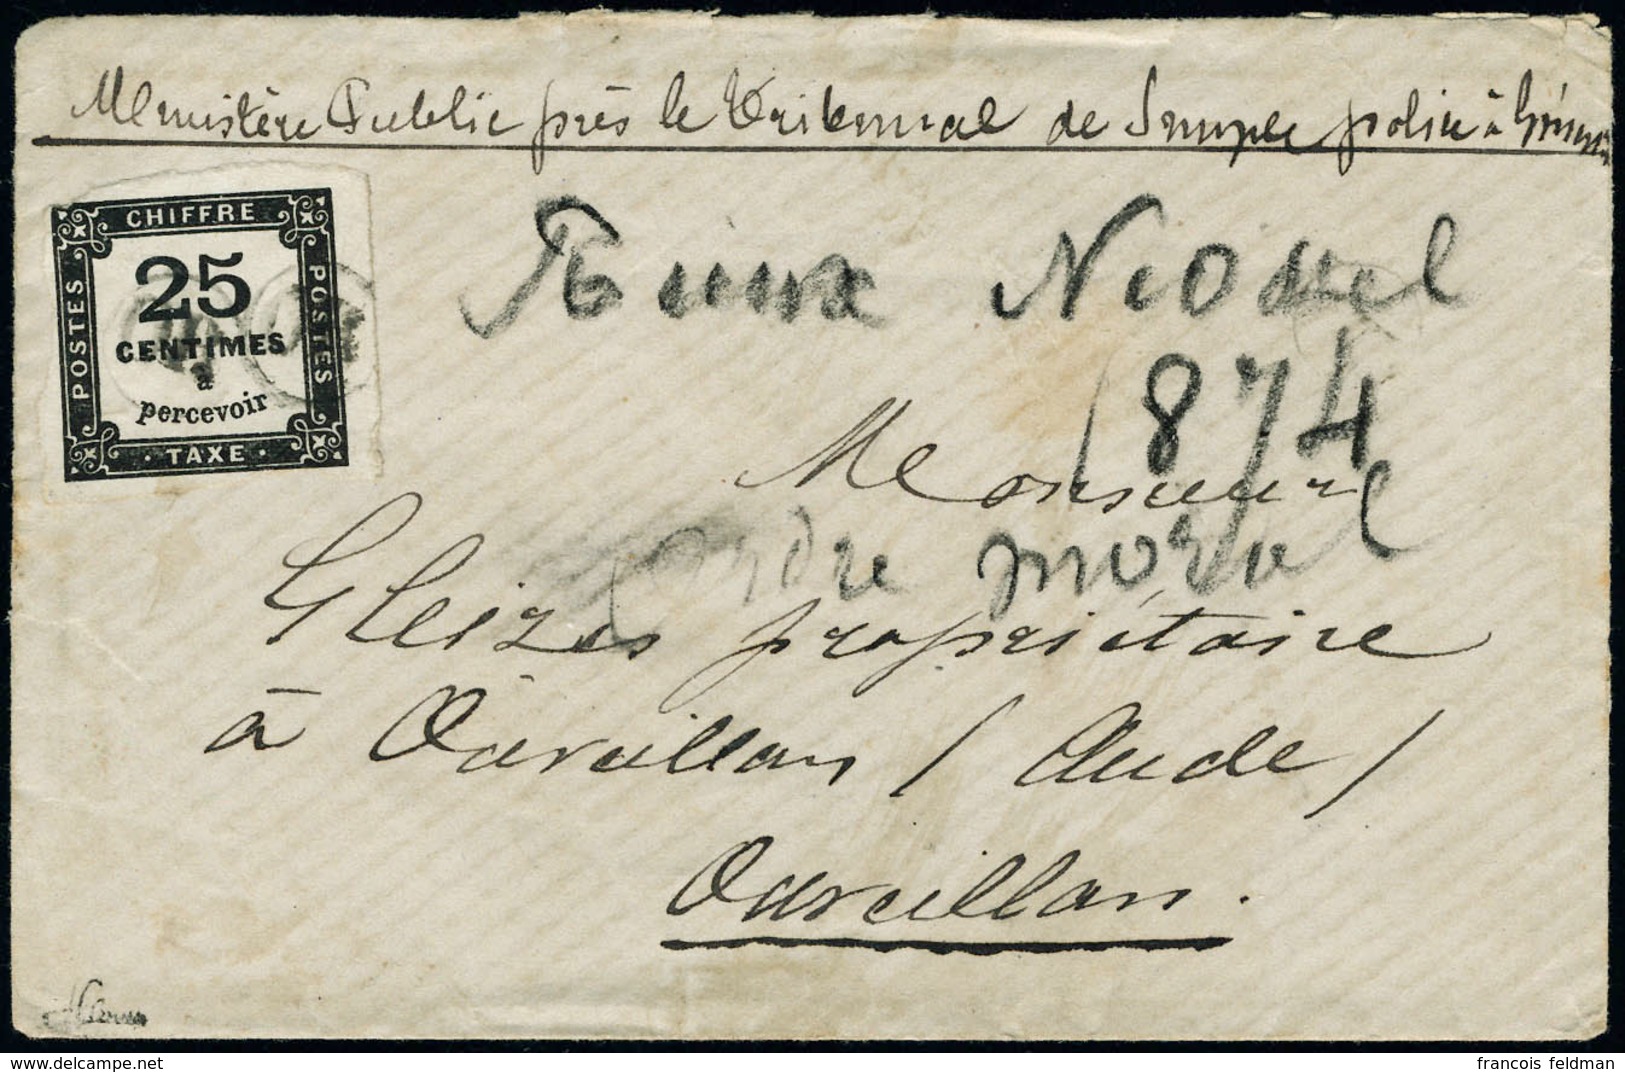 Ministère Public près le Tribunal de Simple police à
CHIFFRE
POSTES
25
CENTIMES
à
percevoir
POSTES
· TAXE ·
1874
Monsieur
ordre moral
Gleizes propriétaire
à Oarveillan / Aude /
Oarveillan.
delcampe.net
francois feldman